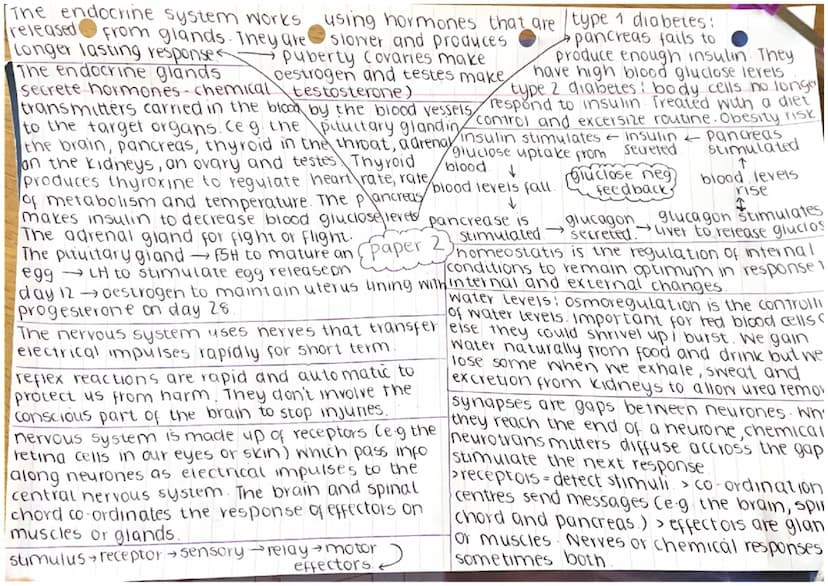 The endocrine system works using hormones that are
released from glands. They are slower and produces
longer lasting response
puberty (ovaries make
oestrogen and testes make
testosterone)
The endocrine glands
secrete hormones - chemical
transmitters carried in the blood by the blood vessels
to the target organs. (e.g. the pituitary gland in
the brain, pancreas, thyroid in the throat, adrenal
on the kidneys, an ovary and testes. Thyroid
produces thyroxine to regulate heart rate, rate
of metabolism and temperature. The pancreas
makes insulin to decrease blood glucose levels
The adrenal gland for fight or flight.
The pituitary gland → FSH to mature an
egg → LH to stimulate egg release on
day 12 → oestrogen to maintain uterus lining with
progesterone on day 28.
The nervous system uses nerves that transfer
electrical impulses rapidly for short term.
reflex reactions are rapid and automatic to
protect us from harm. They don't involve the
conscious part of the brain to stop injuries.
nervous system is made up of receptors (e.g the
retina cells in our eyes or skin) which pass info
along neurones as electrical impulses to the
central nervous system. The brain and spinal
chord co-ordinates the response of effectors on
muscles or glands.
stimulus → receptor → sensory → relay → motor
effectors
paper 2
type 1 diabetes:
pancreas fails to
produce enough insulin. They
have high blood glucose levels
type 2 diabetes: body cells no longer
respond to insulin. Treated with a diet
control and excersize routine. Obesity risk.
insulin stimulates ← insulin ← pancreas
glucose uptake from secreted stimulated
blood. ↓ ↑
glucose neg
feedback
blood levels fall. blood levels
rise
↓
pancrease is → glucagon → glucagon stimulates
stimulated secreted. liver to release
homeostatis is the regulation of internal
conditions to remain optimum in response
internal and external changes
water levels: osmoregulation is the
of water levels. Important for red blood cells
else they could shrivel up/burst. We gain
water naturally from food and drink but we
lose some when we exhale, sweat and
excretion from kidneys to allow urea
synapses are gaps between neurones.
they reach the end of a neurone, chemical
neurotransmitters diffuse accross the gap
stimulate the next response
>receptors = detect stimuli. > co-ordination
centres send messages (e.g. the brain,
chord and pancreas.) > effectors are
or muscles. Nerves or chemical responses
sometimes both.